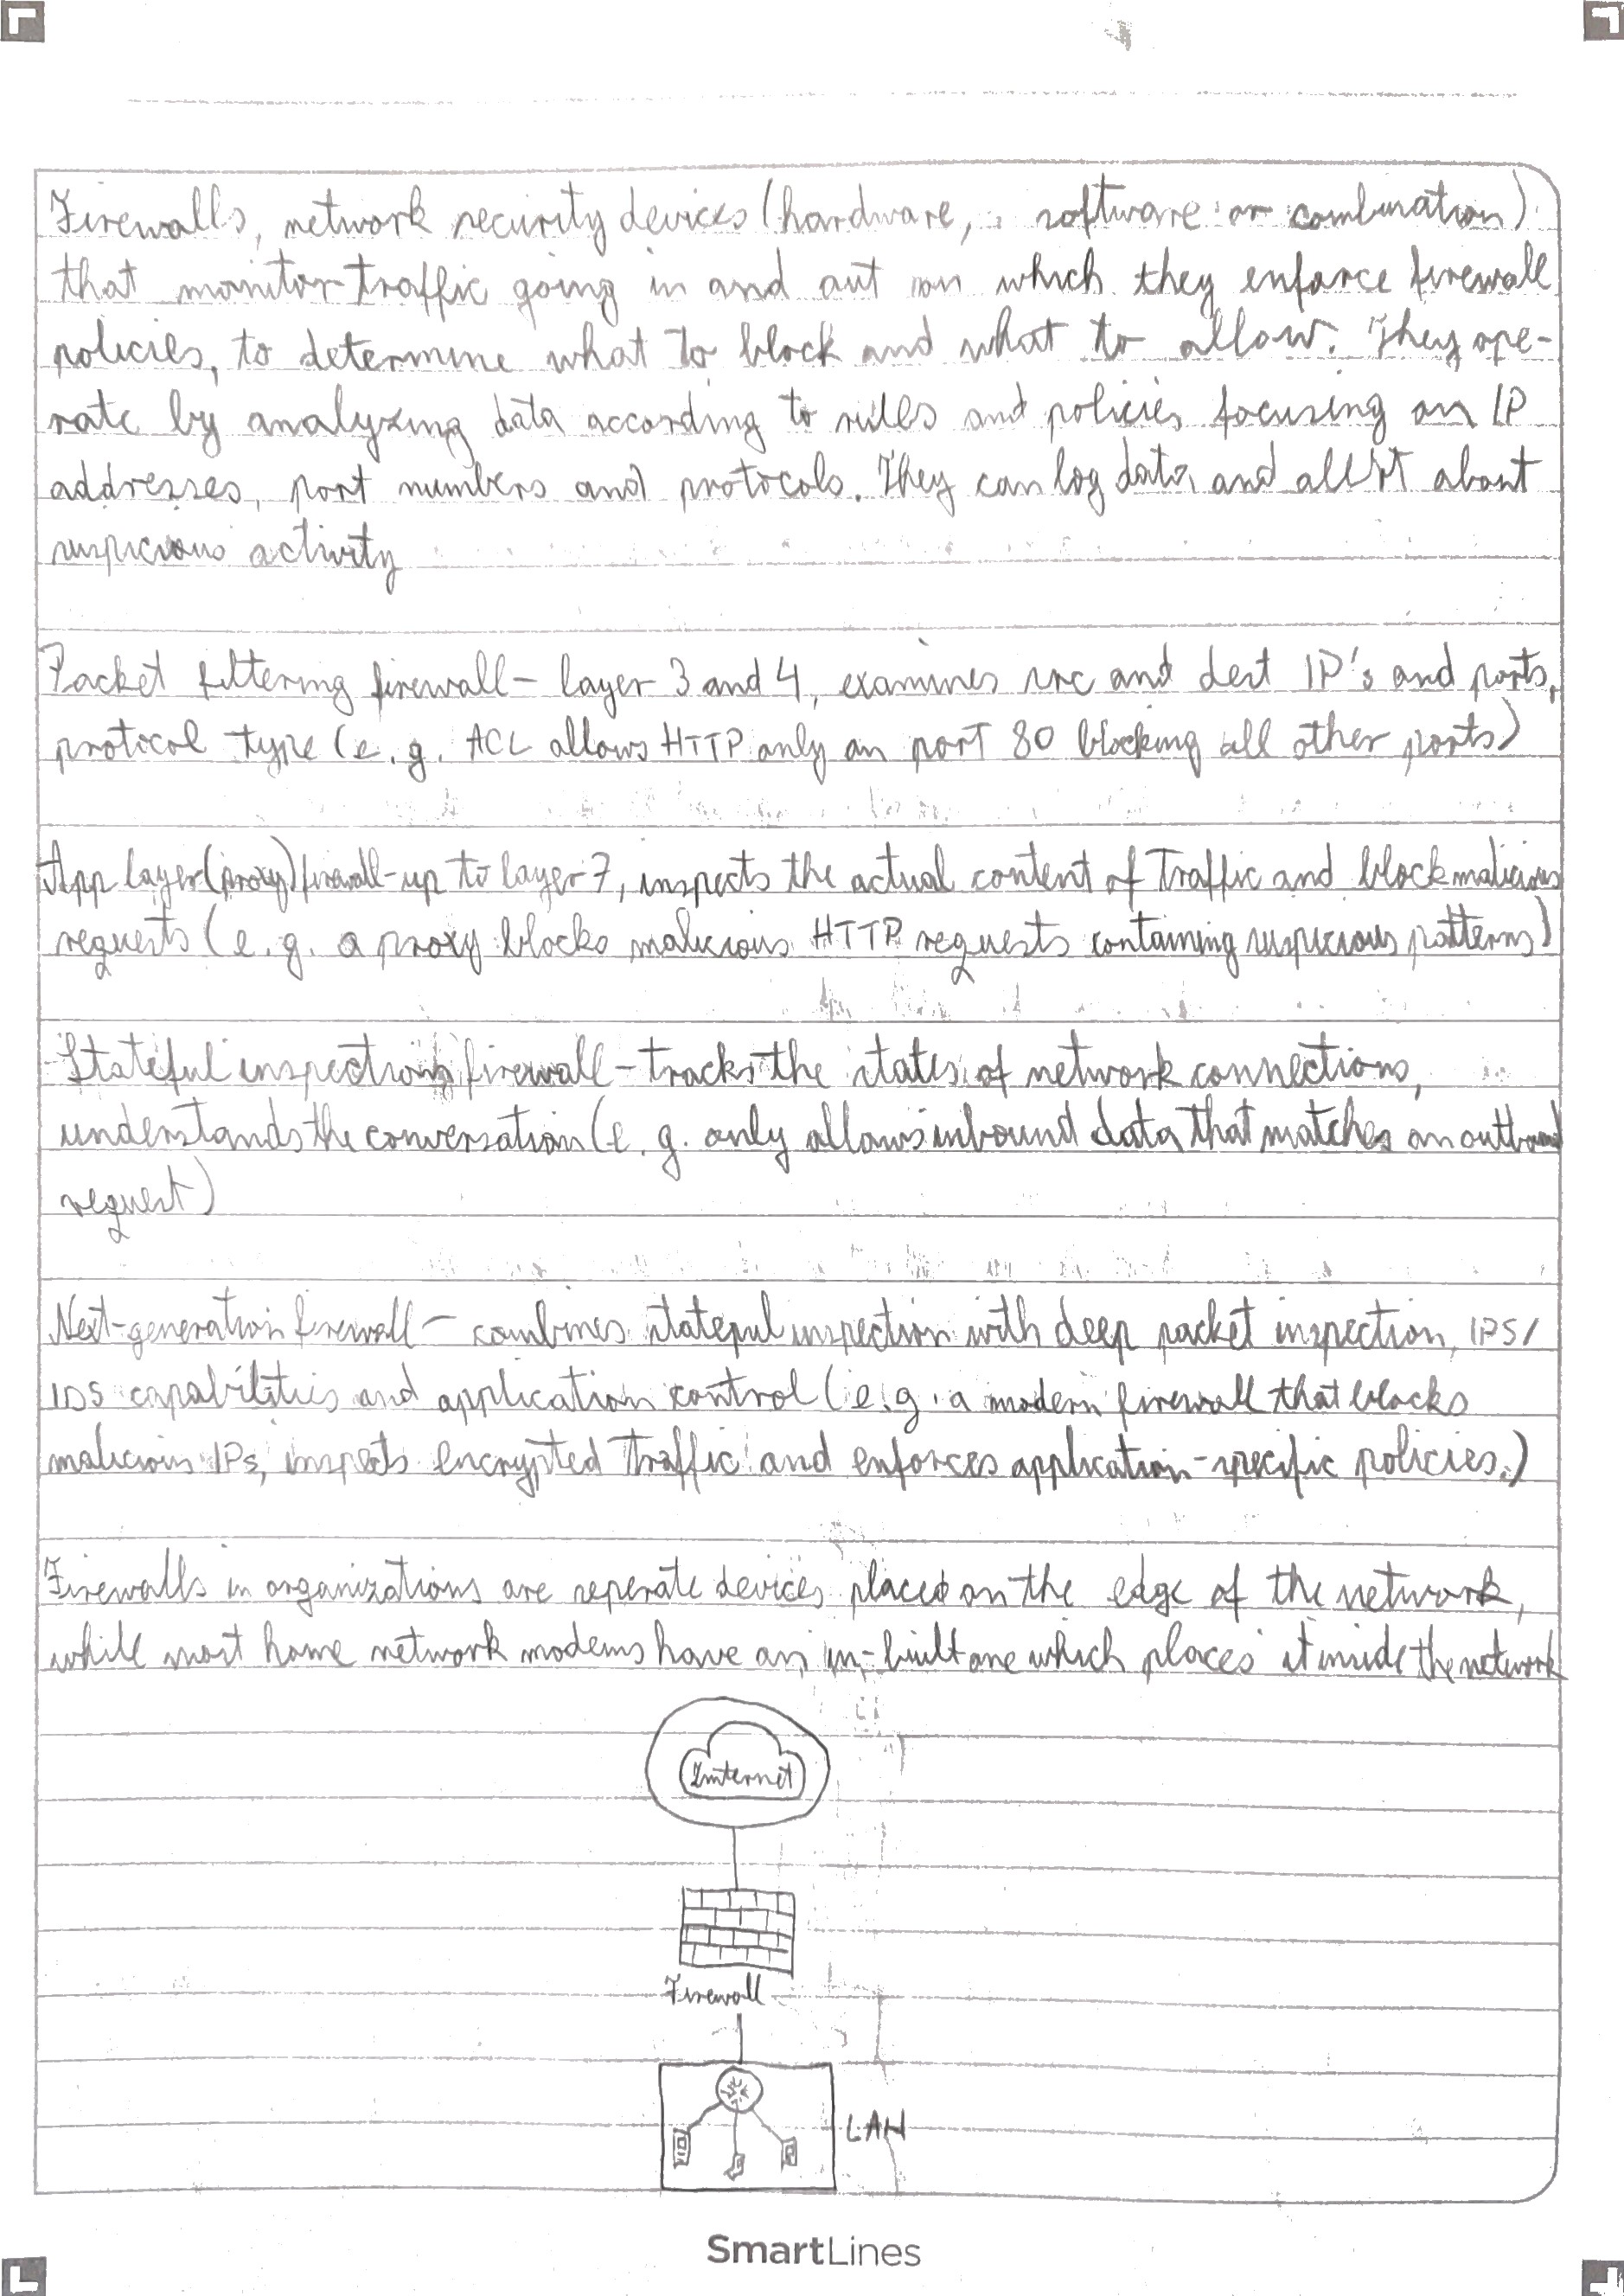 Firewalls, network security devices (hardware, software or combination)
that monitor traffic going in and out on which they enforce firewall
policies, to determine what to block and what to allow. They ope-
rate by analyzing data according to rules and policies focusing on IP
addresses, port numbers and protocols. They can log data and allert about
suspicious activity
Packet filtering firewall - layer 3 and 4, examines src and dest IP's and ports,
protocol type (e.g. ACL allows HTTP only on port 80 blocking all other ports)
App layer (proxy) firewall - up to layer 7, inspects the actual content of traffic and block malicious
requests (e.g. a proxy blocks malicious HTTP requests containing suspicious patterns)
Stateful inspection firewall - tracks the states of network connections,
understands the conversation (e.g. only allows inbound data that matches an outbound
request)
Next-generation firewall - combines stateful inspection with deep packet inspection, IPS/
IDS capabilities and application control (e.g. a modern firewall that blocks
malicious IPs, inspects encrypted traffic and enforces application-specific policies.)
Firewalls in organizations are seperate devices placed on the edge of the network,
while most home network modems have an in-built one which places it inside the network
Internet
Firewall
LAN
SmartLines